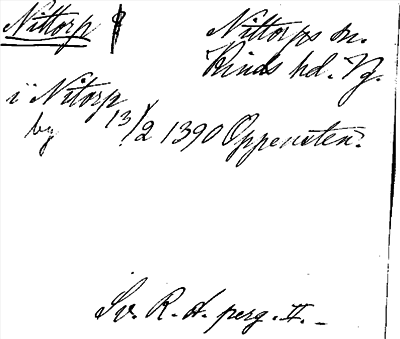 Nittorp Nittorps sn.
Kinds hd. Vg.
i Nitorp
by 13/2 1390 Oppensten.
Sv. R. A. perg. II. -